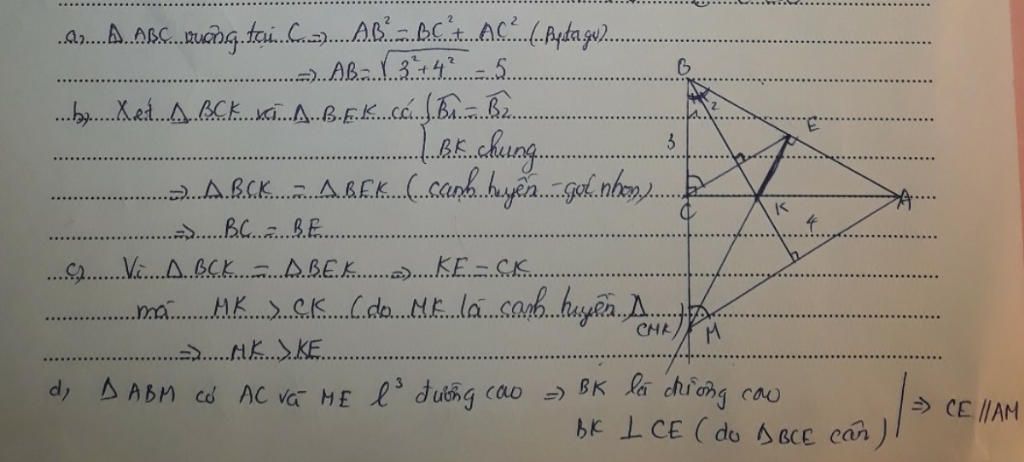 a, Δ ABC vuông tại C => AB² = BC² + AC² (Pytago)
=> AB = √3²+4² = 5
b, Xét Δ BCK và Δ BEK có { B̂1 = B̂2
BK chung
=> Δ BCK = Δ BEK (cạnh huyền - góc nhọn)
=> BC = BE
c, Vì Δ BCK = Δ BEK => KE = CK
mà MK > CK (do MK là cạnh huyền Δ CMK)
=> MK > KE
d, Δ ABM có AC và ME l³ đường cao => BK là đường cao
BK ⊥ CE (do Δ BCE cân) => CE // AM
B
1 2
E
3
C
K
A
4
M